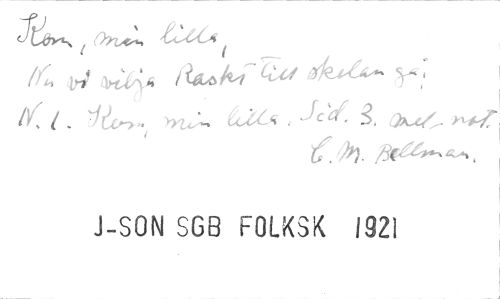 Kom, min lilla,
Nu vi vilja Raskt till skolan gå;
N. 1. Kom, min lilla. Sid. 3. mel. not.
C. M. Bellman.
J-SON SGB FOLKSK 1921